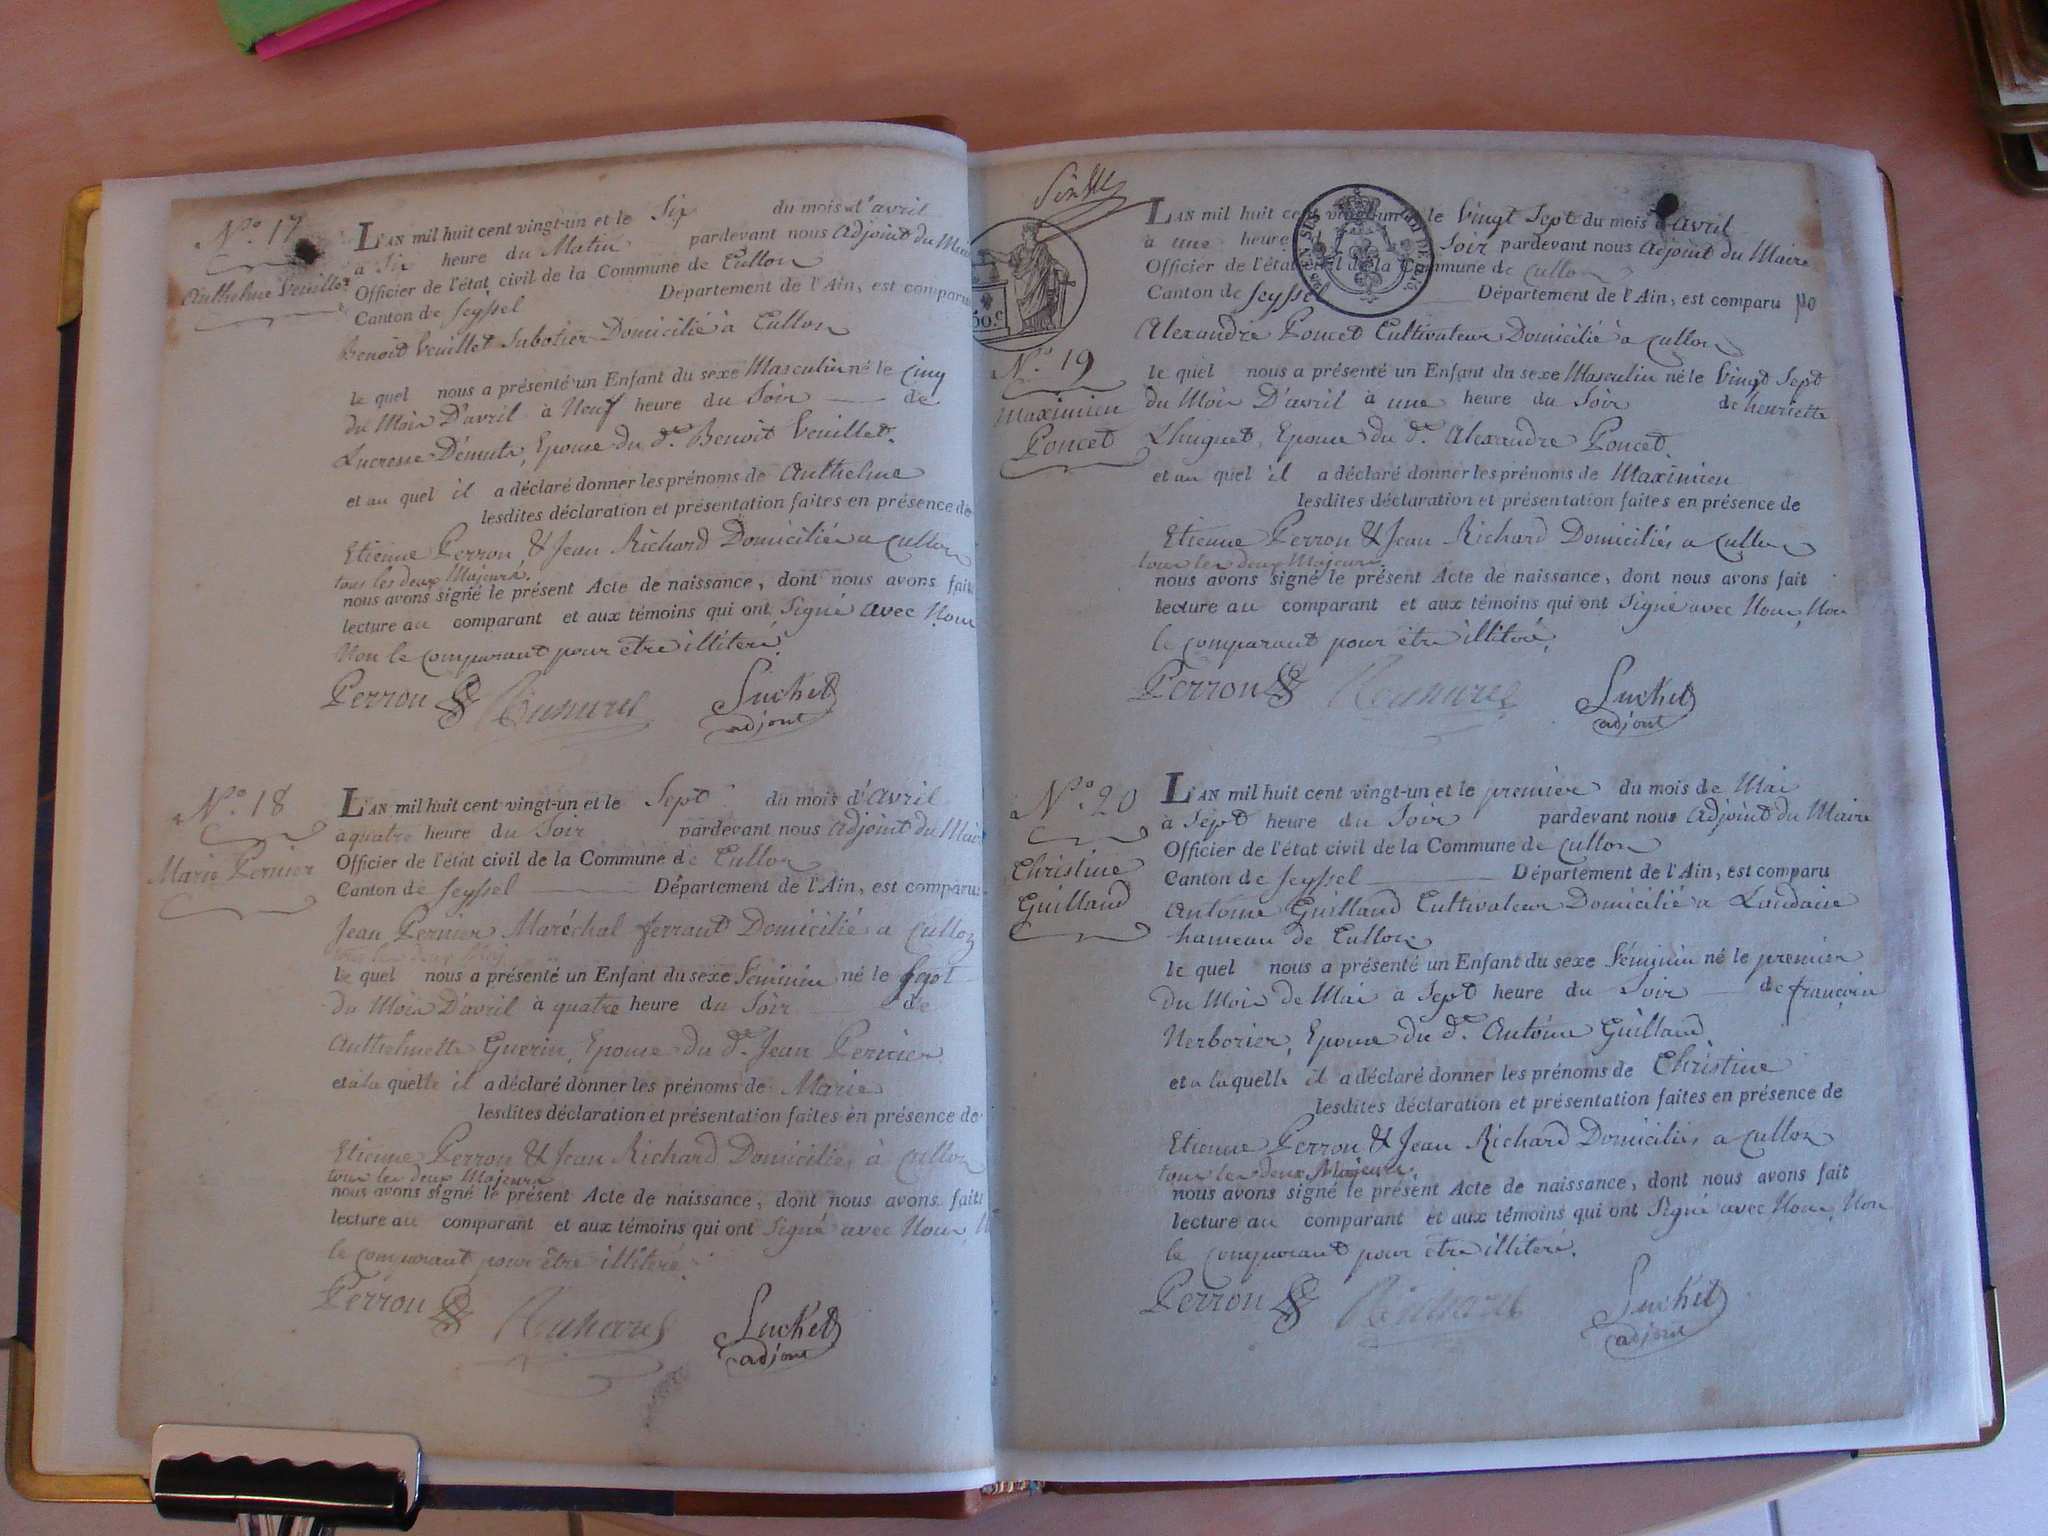 N.o 17
Anthelme Veuillet
L'AN mil huit cent vingt-un et le Six du mois d'avril
à Six heure du Matin pardevant nous adjoint du Maire
Officier de l'état civil de la Commune de Cullon
Canton de Seyssel Département de l'Ain, est comparu
Benoit Veuillet Sabotier Domicilié à Cullon
le quel nous a présenté un Enfant du sexe Masculin né le cinq
du Mois D'avril à Neuf heure du Soir de
Lucresse Demuts, Epouse du dt. Benoit Veuillet.
et au quel il a déclaré donner les prénoms de Anthelme
lesdites déclaration et présentation faites en présence de
Etienne Perron & Jean Richard Domiciliés a Cullon
tous les deux Majeurs.
nous avons signé le présent Acte de naissance, dont nous avons fait
lecture au comparant et aux témoins qui ont Signé avec Nous
Non le comparant pour être illiteré.
Perron Suchet
adjont
N.o 18
Marie Pernier
L'AN mil huit cent vingt-un et le Sept du mois d'avril
a quatre heure du Soir pardevant nous adjoint du Maire
Officier de l'état civil de la Commune de Cullon
Canton de Seyssel Département de l'Ain, est comparu
Jean Pernier Maréchal ferrant Domicilié a Cullon
le quel nous a présenté un Enfant du sexe Féminin né le Sept
du Mois D'avril à quatre heure du Soir de
Anthelmette Guerin, Epouse du dt. Jean Pernier
et à la quelle il a déclaré donner les prénoms de Marie
lesdites déclaration et présentation faites en présence de
Etienne Perron & Jean Richard Domiciliés à Cullon
tous les deux Majeurs
nous avons signé le présent Acte de naissance, dont nous avons fait
lecture au comparant et aux témoins qui ont Signé avec Nous
le comparant pour être illiteré.
Perron Suchet
adjont
50.c
N.o 19
Maximien
Poncet
L'AN mil huit cent vingt-un et le Vingt Sept du mois d'avril
à une heure Soir pardevant nous adjoint du Maire
Officier de l'état civil de la Commune de Cullon
Canton de Seyssel Département de l'Ain, est comparu
Alexandre Poncet Cultivateur Domicilié a Cullon
le quel nous a présenté un Enfant du sexe Masculin né le Vingt Sept
du Mois D'avril à une heure du Soir de henriette
Lhuguet, Epouse du dt. Alexandre Poncet.
et au quel il a déclaré donner les prénoms de Maximien
lesdites déclaration et présentation faites en présence de
Etienne Perron & Jean Richard Domiciliés a Cullon
tous les deux Majeurs.
nous avons signé le présent Acte de naissance, dont nous avons fait
lecture au comparant et aux témoins qui ont Signé avec Nous, Non
le comparant pour être illiteré.
Perron Suchet
adjont
N.o 20
Christine
Guilland
L'AN mil huit cent vingt-un et le premier du mois de Mai
à Sept heure du Soir pardevant nous adjoint du Maire
Officier de l'état civil de la Commune de Cullon
Canton de Seyssel Département de l'Ain, est comparu
Antoine Guilland Cultivateur Domicilié a Landaise
hameau de Cullon
le quel nous a présenté un Enfant du sexe Féminin né le premier
du Mois de Mai a Sept heure du Soir de françoise
Nerborier, Epouse du dt. Antoine Guilland
et a la quelle il a déclaré donner les prénoms de Christine
lesdites déclaration et présentation faites en présence de
Etienne Perron & Jean Richard Domiciliés a Cullon
tous les deux Majeurs.
nous avons signé le présent Acte de naissance, dont nous avons fait
lecture au comparant et aux témoins qui ont Signé avec Nous, Non
le comparant pour être illiteré.
Perron Suchet
adjont